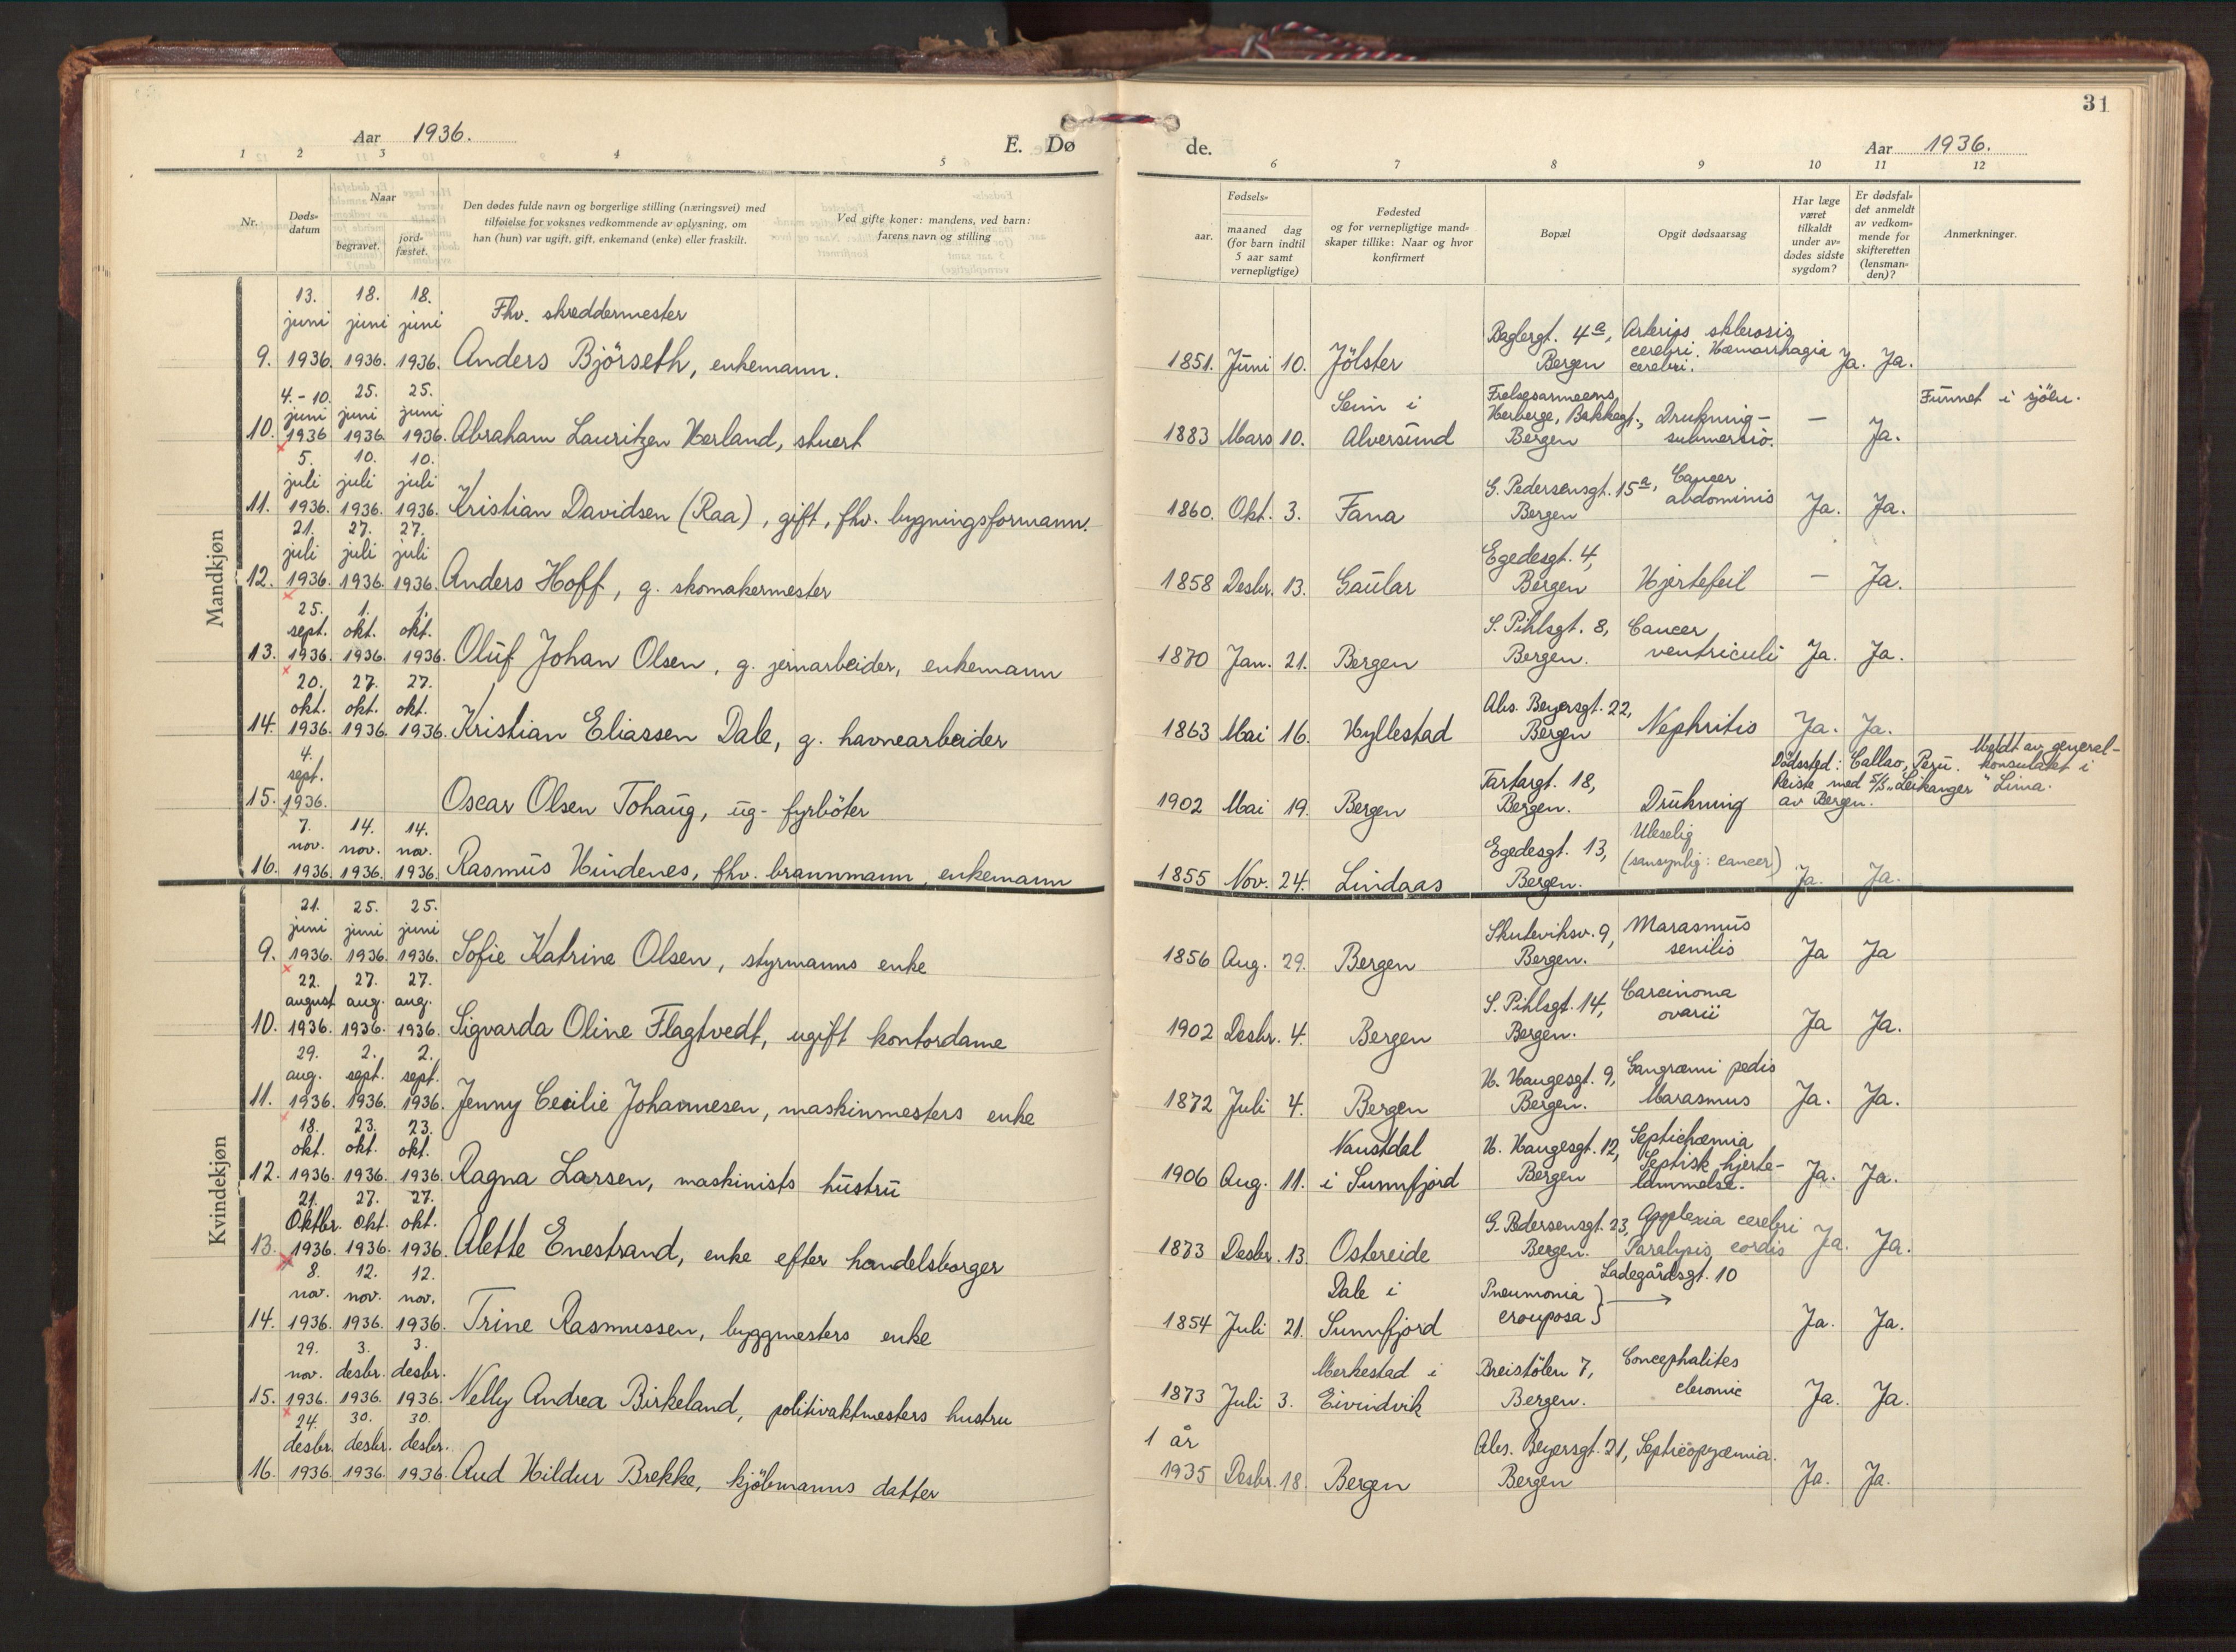 31
Aar 1936.
E. Dø de.
Aar 1936.
1 2 3 4 5 6 7 8 9 10 11 12
Nr.
Døds-
datum
Naar
begravet.
jord-
fæstet.
Den dødes fulde navn og borgerlige stilling (næringsvei) med
tilføielse for voksnes vedkommende av oplysning, om
han (hun) var ugift, gift, enkemand (enke) eller fraskilt.
Ved gifte koner: mandens, ved barn:
farens navn og stilling
Fødsels-
aar.
maaned dag
(for barn indtil
5 aar samt
vernepligtige)
Fødested
og for vernepligtige mand-
skaper tillike: Naar og hvor
konfirmert
Bopæl
Opgit dødsaarsag
Har læge
været
tilkaldt
under av-
dødes sidste
sygdom?
Er dødsfal-
det anmeldt
av vedkom-
mende for
skifteretten
(lensman-
den)?
Anmerkninger.
Mandkjøn
13. 18. 18.
juni juni juni Fhv. skræddermester
9. 1936. 1936. 1936. Anders Björseth, enkemann.
1851. Juni 10. Jölster
Baglergt. 4a,
Bergen
Arterios sklerosis
cerebri. Hæmorrhagia
cerebri.
Ja. Ja.
4.-10. 25. 25.
juni juni juni
10. 1936 1936 1936. Abraham Lauritzen Herland, stuert
1883 Mars 10.
Seim i
Alversund
Frelsesarmeens
Herberge, Bakkegt.,
Bergen
Drukning -
submersio.
— Ja.
Funnet i sjöen.
5. 10. 10.
juli juli juli
11. 1936. 1936. 1936. Kristian Davidsen (Raa), gift, fhv. bygningsformann.
1860. Okt. 3. Fana
G. Pedersensgt. 15a,
Bergen
Cancer
abdominis
Ja. Ja.
21. 27. 27.
juli juli juli
12. 1936. 1936. 1936. Anders Hoff, g. skomakermester
1858 Desbr. 13. Gaular
Egedesgt. 4,
Bergen
Hjertefeil
— Ja.
25. 1. 1.
sept. okt. okt.
13. 1936. 1936. 1936. Oluf Johan Olsen, g. jernarbeider, enkemann
1870 Jan. 21. Bergen
S. Pihlsgt. 8,
Bergen.
Cancer
ventriculi
Ja. Ja.
20. 27. 27.
okt. okt. okt.
14. 1936. 1936. 1936. Kristian Eliassen Dale, g. havnearbeider
1863 Mai 16. Hyllestad
Abs. Beyersgt. 22,
Bergen
Nephritis
Ja. Ja.
4.
sept.
15. 1936. Oscar Olsen Tohaug, ug- fyrböter
1902 Mai 19. Bergen
Tartargt. 18,
Bergen.
Drukning
Dödssted: Callao, Peru.
Reiste med S/S „Leikanger"
av Bergen.
Meldt av general-
konsulatet i
Lima.
7. 14. 14.
nov. nov. nov.
16. 1936. 1936. 1936. Rasmus Hindenes, fhv. brannmann, enkemann
1855 Nov. 24. Lindaas
Egedesgt. 13,
Bergen.
Uleselig
(sansynlig: cancer)
Ja. Ja.
Kvindekjøn
21. 25. 25.
juni juni juni
9. 1936. 1936. 1936. Sofie Katrine Olsen, styrmanns enke
1856 Aug. 29. Bergen
Skuteviksv. 9,
Bergen.
Marasmus
senilis
Ja Ja
22. 27. 27.
august aug. aug.
10. 1936. 1936. 1936. Sigvarda Oline Flagtvedt, ugift kontordame
1902 Desbr. 4. Bergen
S. Pihlsgt. 14,
Bergen.
Carcinoma
ovarii
Ja Ja.
29. 2. 2.
aug. sept. sept.
11. 1936. 1936. 1936. Jenny Cecilie Johannesen, maskinmesters enke
1872 Juli 4. Bergen
H. Haugesgt. 9,
Bergen.
Gangræni pedis
Marasmus
Ja. Ja.
18. 23. 23.
okt. okt. okt.
12. 1936. 1936. 1936. Ragna Larsen, maskinists hustru
1906 Aug. 11.
Naustdal
i Sunnfjord
H. Haugesgt. 12,
Bergen
Septichæmia
Septisk hjerte-
lammelse.
Ja. Ja.
21. 27. 27.
Oktbr. okt. okt.
13. 1936. 1936. 1936. Alette Enestrand, enke efter handelsborger
1873 Desbr. 13. Ostereide
G. Pedersensgt. 23,
Bergen.
Apoplexia cerebri
Paralysis cordis
Ja. Ja.
8. 12. 12.
nov. nov. nov.
14. 1936. 1936. 1936. Trine Rasmussen, byggmesters enke
1854 Juli 21.
Dale i
Sunnfjord
Pneumonia
crouposa } →
Ladegårdsgt. 10
Ja. Ja.
29. 3. 3.
nov. desbr. desbr.
15. 1936. 1936. 1936. Nelly Andrea Birkeland, politivaktmesters hustru
1873 Juli 3.
Merkestad i
Eivindvik
Breistölen 7,
Bergen.
Concephalites
chronic
Ja. Ja.
24. 30. 30.
desbr. desbr. desbr.
16. 1936. 1936. 1936. Aud Hildur Brekke, kjöbmanns datter
1 år
1935 Desbr. 18. Bergen
Abs. Beyersgt. 21,
Bergen
Septicopyæmia.
Ja. Ja.